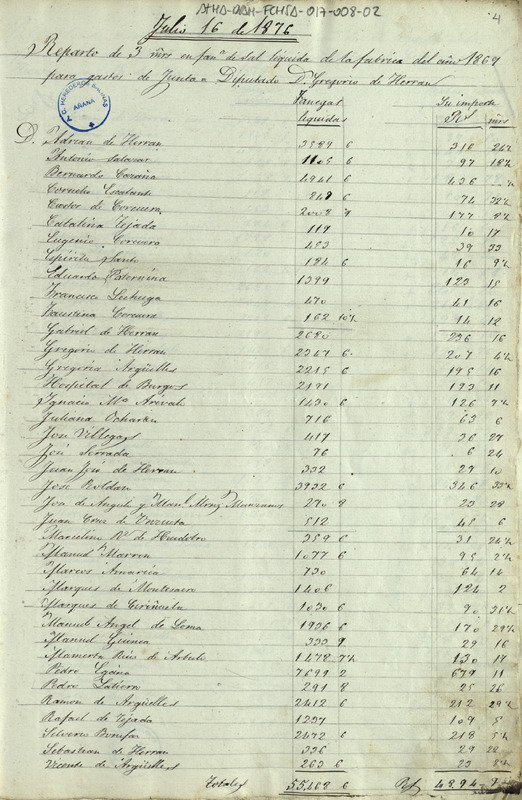 ATHA-DAH-FCHSA-017-008-02
4
Julio 16 de 1876
Reparto de 3 mrs en fanª de sal líquida de la fabrica del año 1869
para gastos de Junta a Diputado D. Gregorio de Herran
Fanegas liquidas Su importe
Rs mrs
D. Adrian de Herran 3589 6 316 24
Antonio Salazar 1105 6 97 18
Bernardo 4941 6 436
Cornelio Escalante 848 6 74 32
Castor de Corcuera 2008 9 177 8
Catalina Tejada 119 10 17
Eugenio Corcuera 453 39 33
Espiritu Santo 184 6 16 9
Eduardo Paternina 1399 123 15
Francisco Lechuga 470 41 16
Faustina Corcuera 162 10 14 12
Gabriel de Herran 2680 236 16
Gregorio de Herran 2347 6 207 4
Gregoria Argüelles 2215 6 195 16
Hospital de Burgos 2191 193 11
Ignacio Mª 1430 6 126 7
Juliana Ocharan 716 63 6
José Villegas 417 36 27
José Terrada 76 6 24
Juan José de Herran 332 29 10
José Roldan 3932 6 346 33
José de Angulo y Manl Mrnz Manzanos 270 8 23 28
Juan Cruz de 512 45 6
Marcelino Rz de Huidobro 359 6 31 24
Manuel Marron 1077 6 95 2
Marcos Amarica 730 64 14
Marques de Montesacro 1406 124 2
Marques de Cirinuela 1030 6 90 31
Manuel Angel de Lema 1936 6 170 29
Manuel Güemea 333 9 29 16
Mamerta Rius de Arbulo 1478 7 130 17
Pedro Egaña 7699 2 679 11
Pedro 291 8 25 26
Ramon de Argüelles 2412 6 212 29
Rafael de Tejada 1237 109 5
Silverio Bonifaz 2472 6 218 5
Sebastian de Herran 336 29 22
Vicente de Argüelles 263 6 23 8
Totales 55468 6 Rs 4894 9
Cº G. HEREDEROS SALINAS
AÑANA